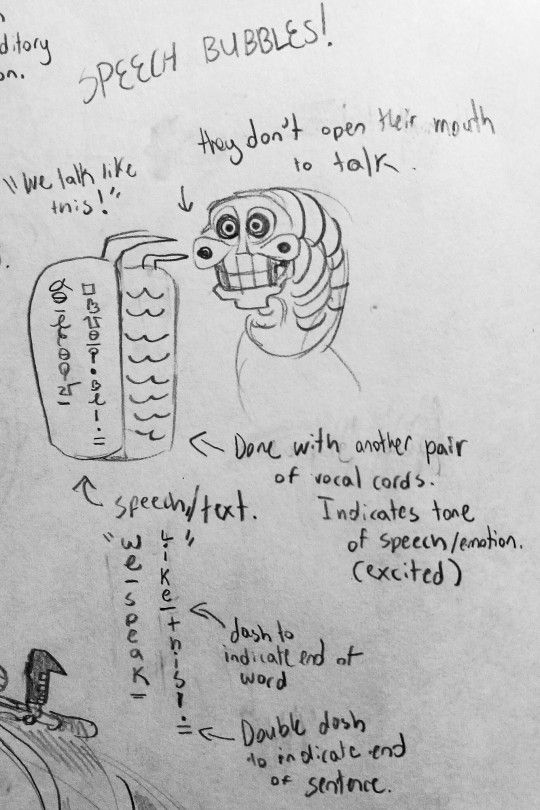 ditory
on.
SPEECH BUBBLES!
they don't open their mouth
to talk.
"we talk like
this!"
Done with another pair
of vocal cords.
Indicates tone
of speech/emotion.
(excited)
speech/text.
"we-speak=
like-this!="
dash to
indicate end of
word
Double dash
to indicate end
of sentence.